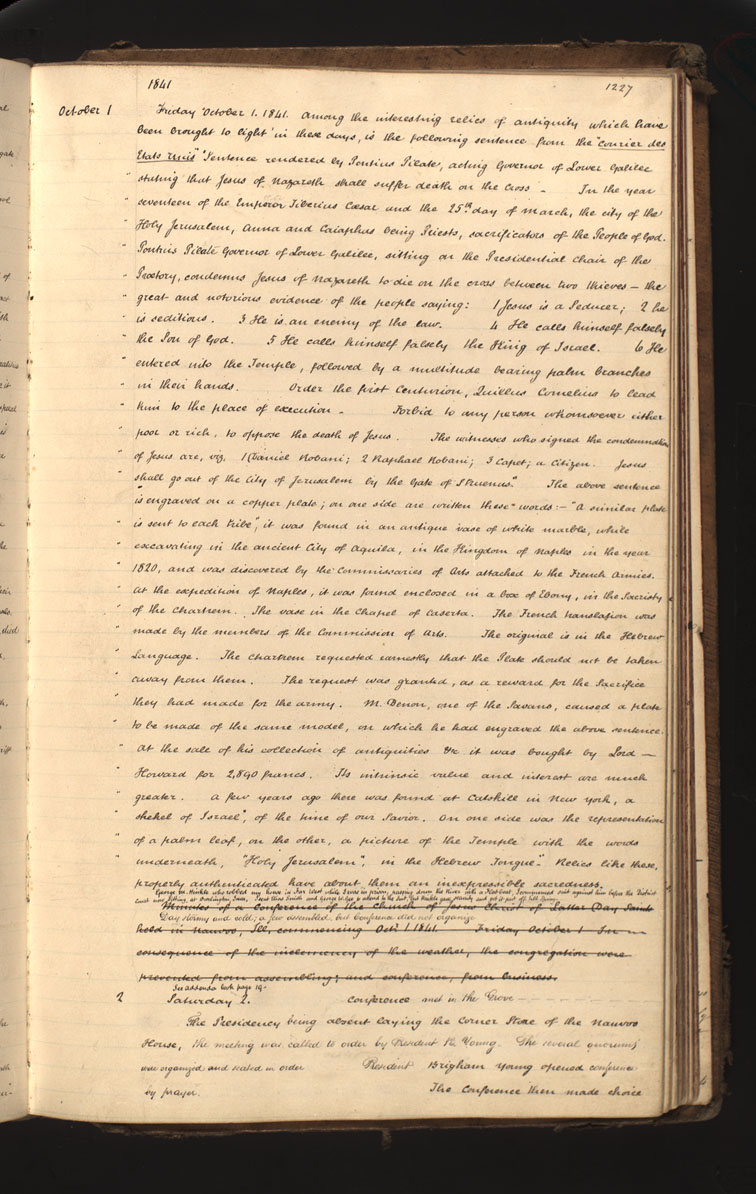 1841
1227
October 1 Friday October 1. 1841. Among the interesting relics of antiquity which have
been brought to light in these days, is the following sentence from the "Courier des
Etats Unis" "Sentence rendered by Pontius Pilate, acting Governor of Lower Galilee
" stating that Jesus of Nazareth shall suffer death on the cross – In the year
" seventeen of the Emperor Tiberius Cæsar and the 25th day of March, the city of the
" Holy Jerusalem, Anna and Caiaphas being Priests, sacrificators of the People of God.
" Pontius Pilate Governor of Lower Galilee, sitting on the Presidential Chair of the
" Praetory, condemns Jesus of Nazareth to die on the cross between two thieves – the
" great and notorious evidence of the people saying: 1 Jesus is a Seducer; 2 he
" is seditious. 3 He is an enemy of the law. 4 He calls himself falsely
" the Son of God. 5 He calls himself falsely the King of Israel. 6 He
" entered into the Temple, followed by a multitude bearing palm branches
" in their hands. Order the first Centurion, Quillus Cornelius to lead
" him to the place of execution – Forbid to any person whomsoever either
" poor or rich, to oppose the death of Jesus. The witnesses who signed the condemnation
" of Jesus are, viz. 1 Daniel Robani; 2 Raphael Robani; 3 Capet; a Citizen. Jesus
" shall go out of the City of Jerusalem by the Gate of Struenus." The above sentence
" is engraved on a copper plate; on one side are written these words:– "A similar plate
" is sent to each tribe", it was found in an antique vase of white marble, while
" excavating in the ancient City of Aquila, in the Kingdom of Naples in the year
" 1820, and was discovered by the Commissaries of Arts attached to the French Armies.
" At the expedition of Naples, it was found enclosed in a box of Ebony, in the Sacristy
" of the Chartrem. The vase in the Chapel of Caserta. The French translation was
" made by the members of the Commission of Arts. The original is in the Hebrew
" Language. The Chartrem requested earnestly that the Plate should not be taken
" away from them. The request was granted, as a reward for the Sacrifice
" they had made for the army. M. Denon, one of the Savans, caused a plate
" to be made of the same model, on which he had engraved the above sentence.
" At the sale of his collection of antiquities &c it was bought by Lord –
" Howard for 2,890 francs. Its intrinsic value and interest are much
" greater. A few years ago there was found at Catskill in New York, a
" shekel of Israel", of the time of our Savior. On one side was the representation
" of a palm leaf, on the other, a picture of the Temple with the words
" underneath, "Holy Jerusalem", in the Hebrew Tongue". Relics like these,
properly authenticated have about them an inexpressible sacredness.
George M. Hinkle who robbed my house in Far West while I was in prison, passing down the River into a
Minutes of a Conference of the Church of Jesus Christ of Latter Day Saints
Day stormy and cold; a few assembled, but conference did not organize
held in Nauvoo, Ill, commencing Octr. 1 1841. Friday October 1 In –
consequence of the inclemency of the weather, the congregation were
prevented from assembling; and conference, from business.
See addenda book page 19.
2 Saturday 2. Conference met in the Grove
The Presidency being absent laying the Corner Stone of the Nauvoo
House, the meeting was called to order by President B. Young. The several quorums
were organized and seated in order President Brigham Young opened conference
by prayer. The Conference then made choice